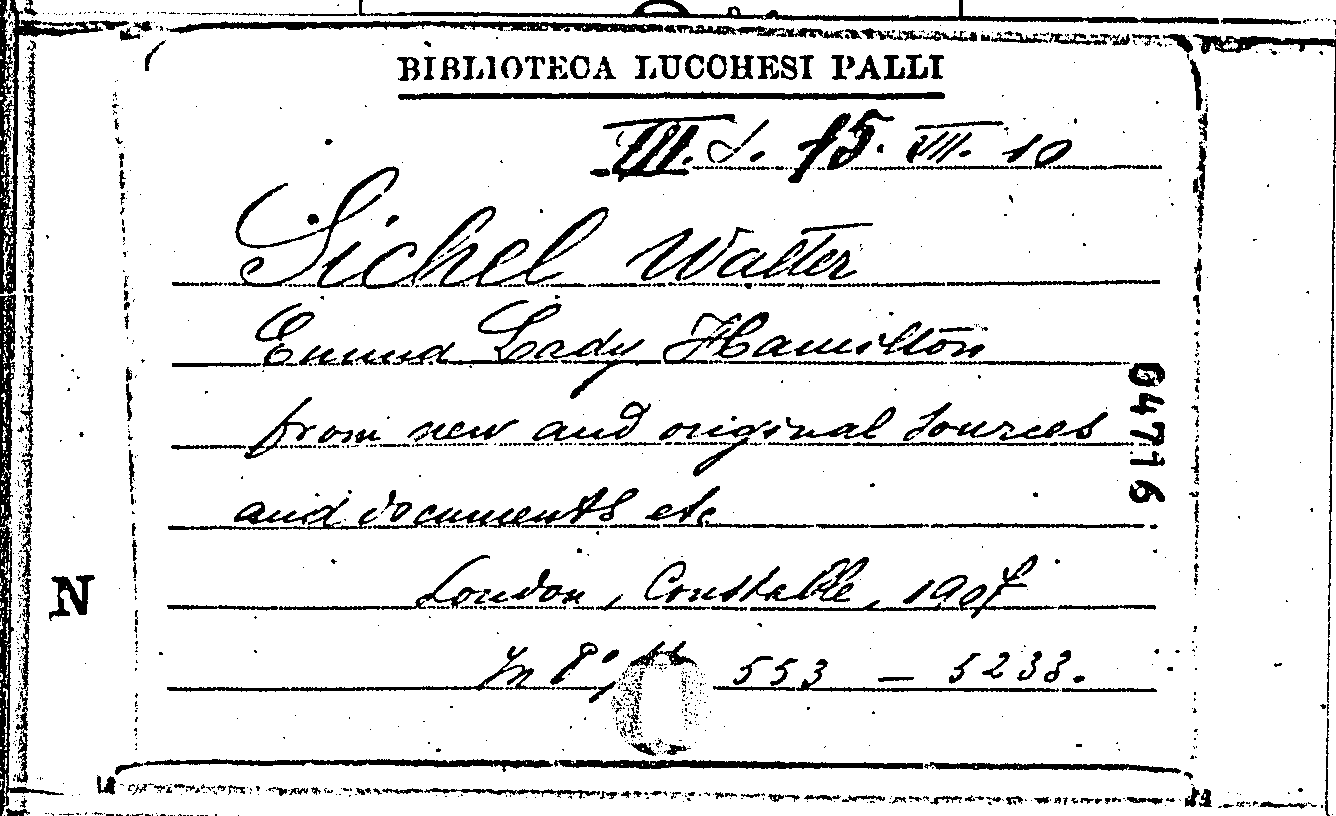 BIBLIOTECA LUCCHESI PALLI
III. d. 15. VII. 10
Sichel Walter
Emma Lady Hamilton
from new and original sources
and documents etc
London, Constable, 1907
In 8°, 553 — 5233.
64716
N